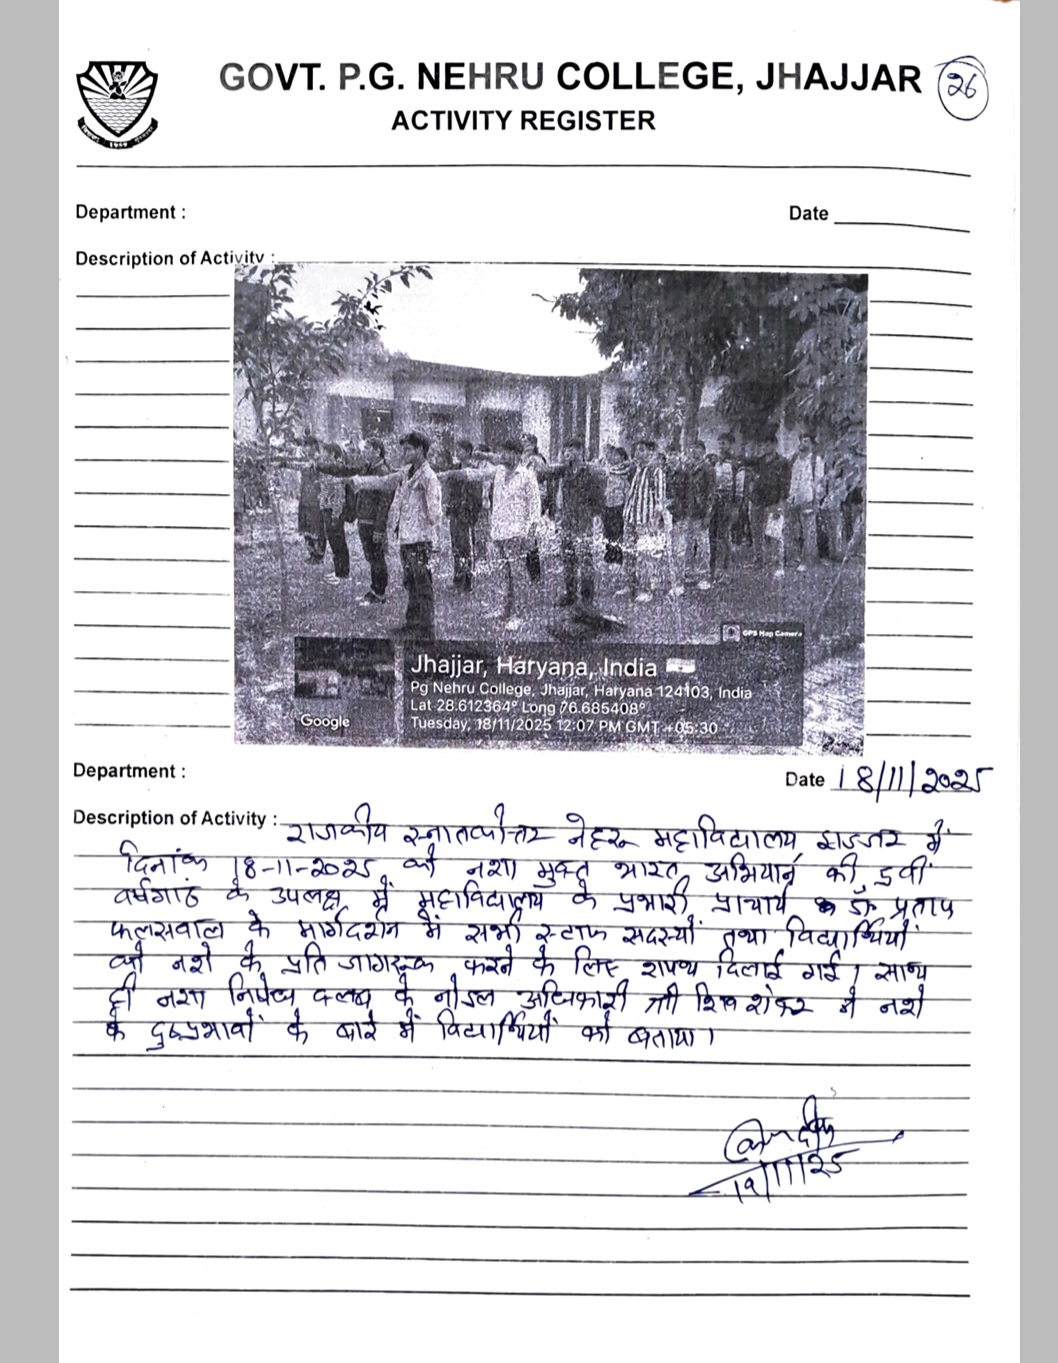 GOVT. P.G. NEHRU COLLEGE, JHAJJAR
26
ACTIVITY REGISTER
Department :
Date
Description of Activity :
GPS Map Camera
Jhajjar, Haryana, India
Pg Nehru College, Jhajjar, Haryana 124103, India
Lat 28.612364° Long 76.685408°
Tuesday, 18/11/2025 12:07 PM GMT +05:30
Google
Department :
Date 18/11/2025
Description of Activity : राजकीय स्नातकोत्तर नेहरू महाविद्यालय, झज्जर में
दिनांक 18-11-2025 को नशा मुक्त भारत अभियान की 5वीं
वर्षगांठ के उपलक्ष में महाविद्यालय के प्रभारी प्राचार्य डॉ प्रताप
फलसवाल के मार्गदर्शन में सभी स्टाफ सदस्यों तथा विद्यार्थियों
को नशे के प्रति जागरूक करने के लिए शपथ दिलाई गई। साथ
ही नशा निषेध क्लब के नोडल अधिकारी श्री शिव शेखर ने नशे
के दुष्प्रभावों के बारे में विद्यार्थियों को बताया।
19/11/25